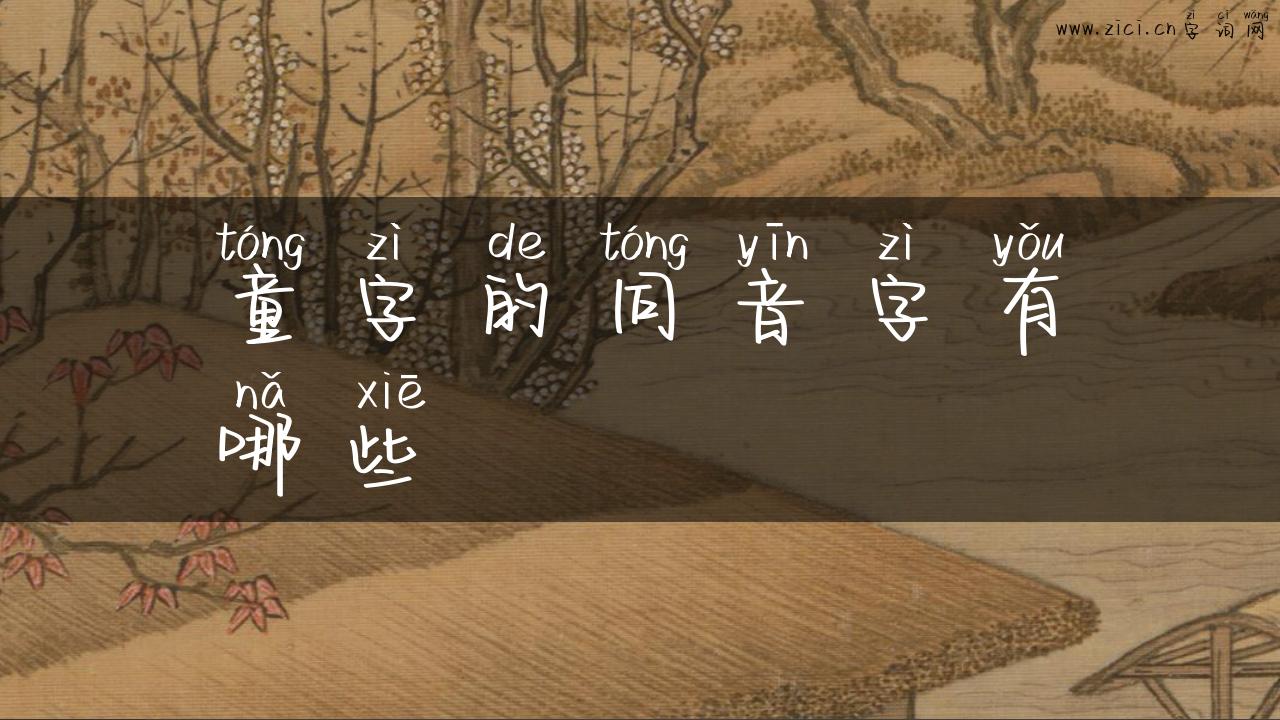 zì cí wǎng
www.zici.cn字词网
tóng zì de tóng yīn zì yǒu
童字的同音字有
nǎ xiē
哪些